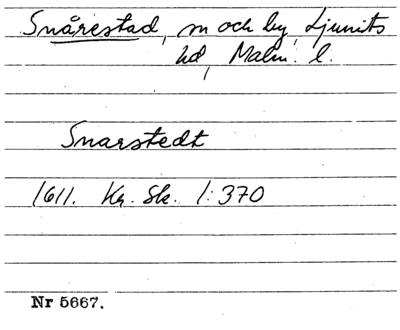 Snårestad, sn och by, Ljunits
hd, Malm. l.
Snarstedt
1611. Kr. Sk. 1:370
Nr 5667.